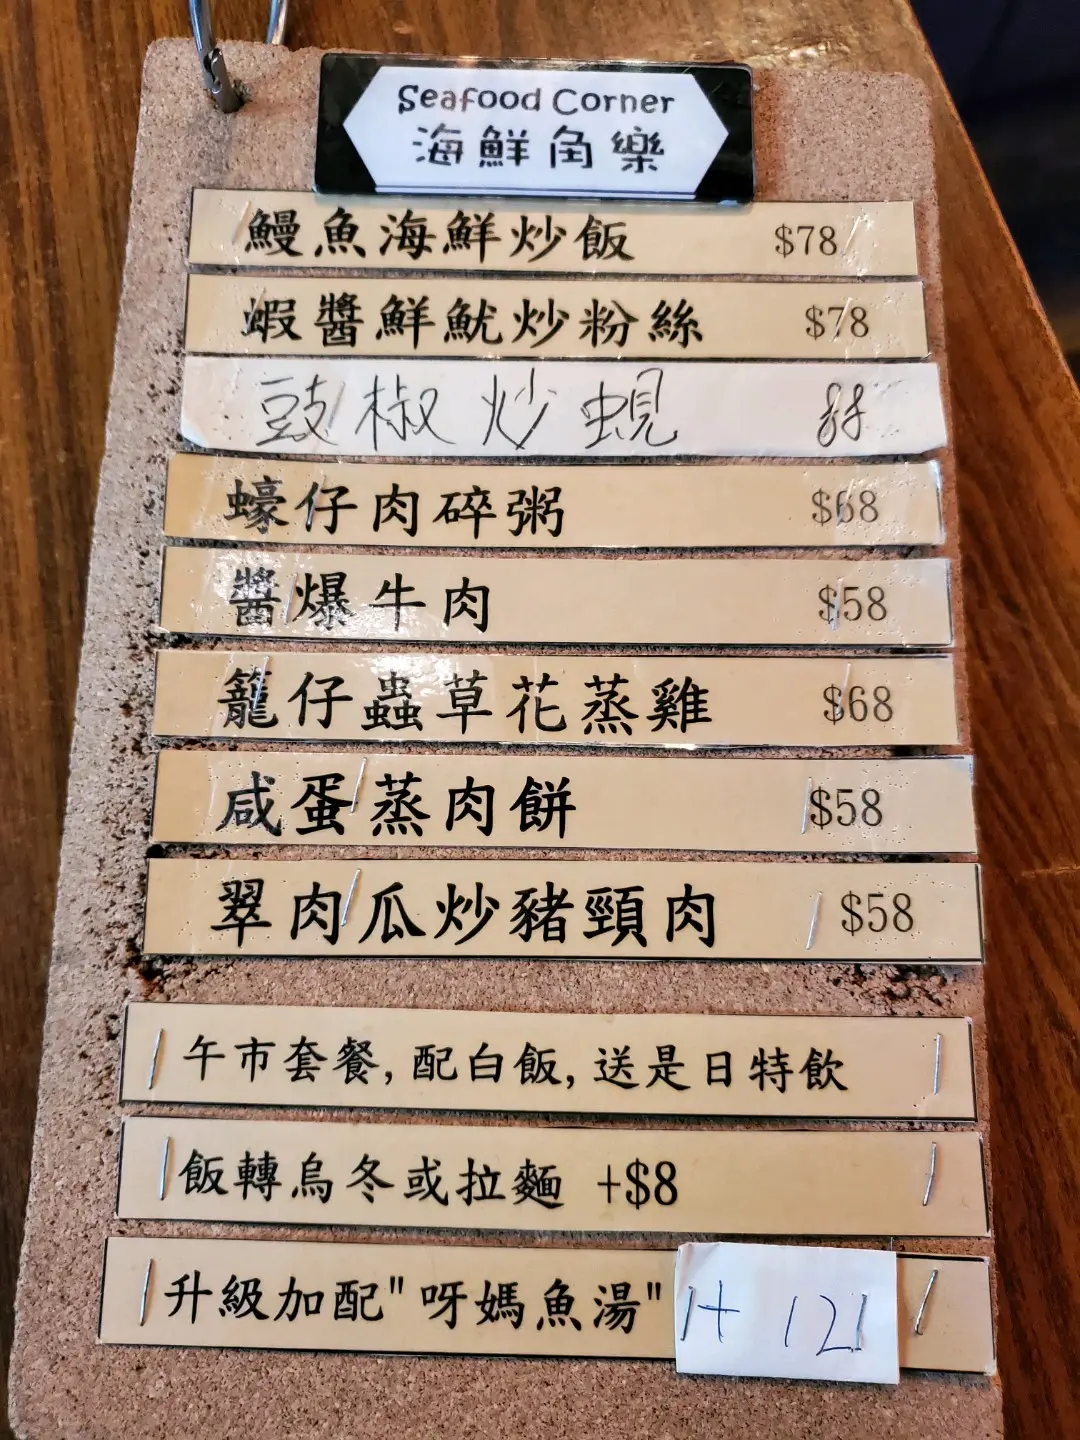 Seafood Corner
海鮮角樂
鰻魚海鮮炒飯 $78
蝦醬鮮魷炒粉絲 $78
豉椒炒蜆 88
蠔仔肉碎粥 $68
醬爆牛肉 $58
籠仔蟲草花蒸雞 $68
咸蛋蒸肉餅 $58
翠肉瓜炒豬頸肉 $58
午市套餐, 配白飯, 送是日特飲
飯轉烏冬或拉麵 +$8
升級加配"呀媽魚湯" + 12